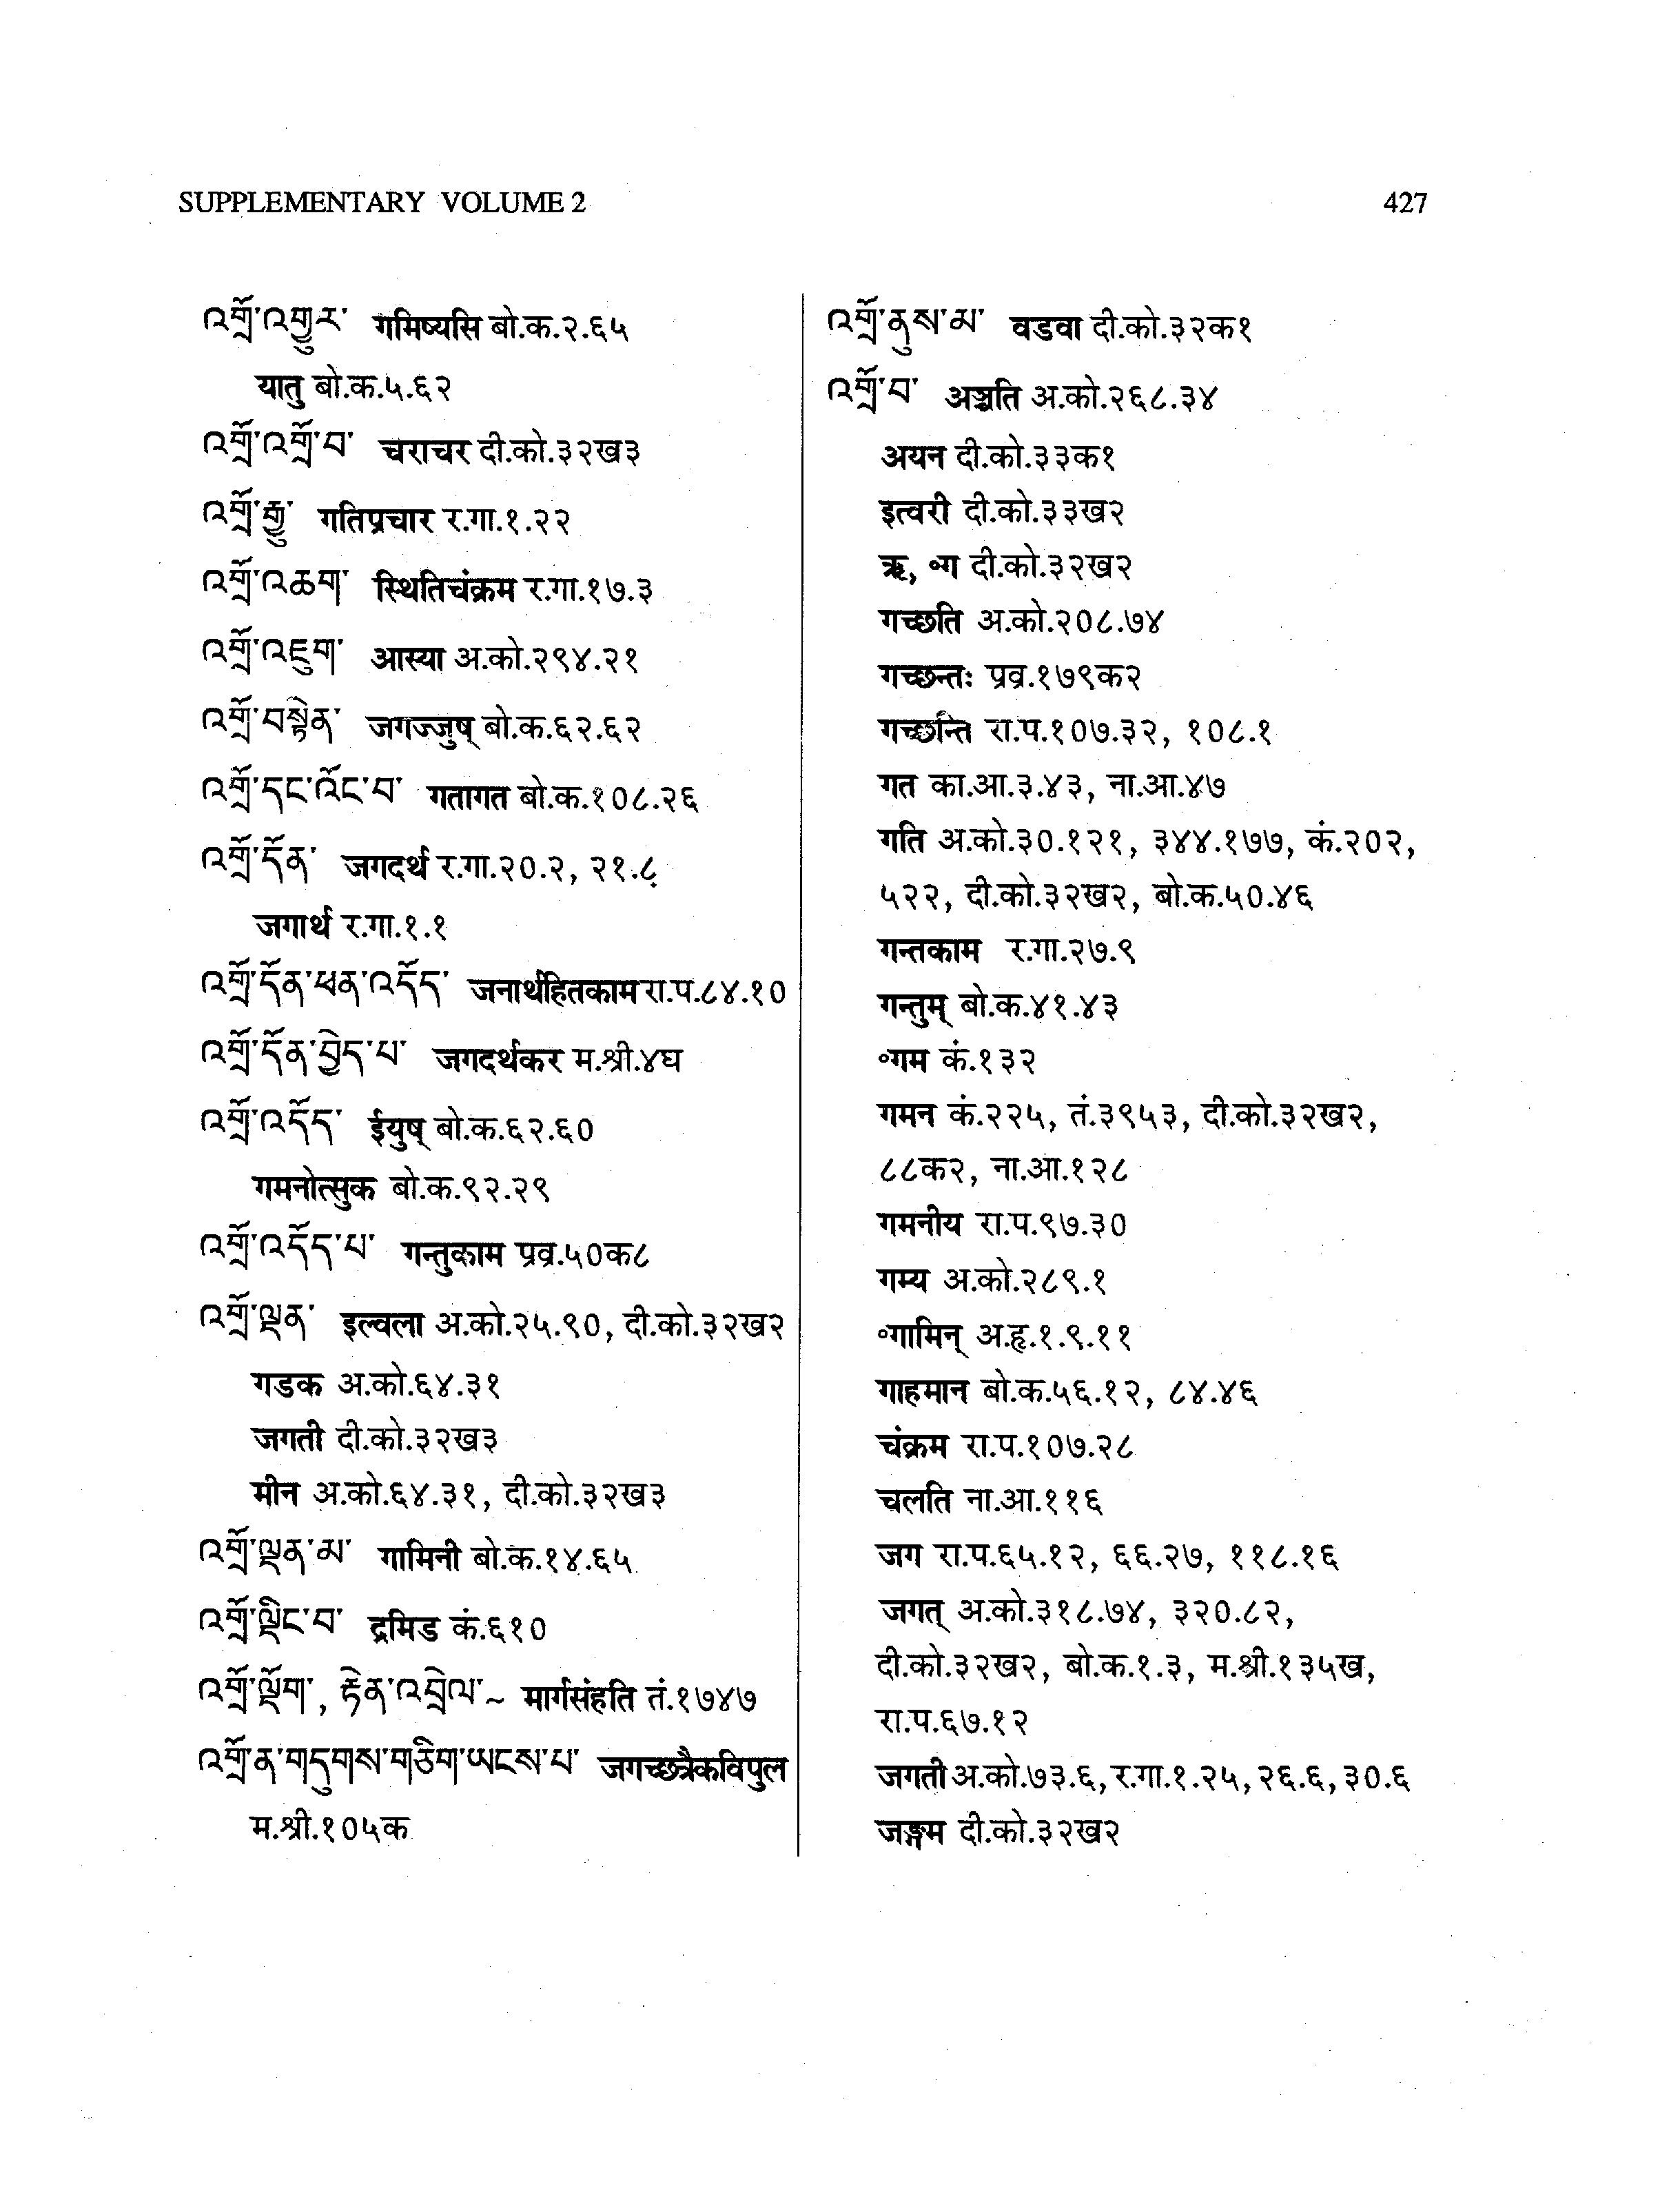 SUPPLEMENTARY VOLUME 2
427
འགྲོ་འགྱུར་ गमिष्यसि बो.क.२.६५
यातु बो.क.५.६२
འགྲོ་འགྲོ་བ་ चराचर दी.को.३२ख३
འགྲོ་རྒྱུ་ गतिप्रचार र.गा.१.२२
འགྲོ་འཆག་ स्थितिचंक्रम र.गा.१७.३
འགྲོ་འཇུག་ आस्या अ.को.२९४.२१
འགྲོ་བསྟེན་ जगज्जुष् बो.क.६२.६२
འགྲོ་དང་འོང་བ་ गतागत बो.क.१०८.२६
འགྲོ་དོན་ जगदर्थ र.गा.२०.२, २१.८
जगार्थ र.गा.१.१
འགྲོ་དོན་ཕན་འདོད་ जनार्थहितकाम रा.प.८४.१०
འགྲོ་དོན་བྱེད་པ་ जगदर्थकर म.श्री.४घ
འགྲོ་འདོད་ ईयुष् बो.क.६२.६०
गमनोत्सुक बो.क.९२.२९
འགྲོ་འདོད་པ་ गन्तुकाम प्रव्र.५०क८
འགྲོ་ལྡན་ इल्वला अ.को.२५.९०, दी.को.३२ख२
गडक अ.को.६४.३१
जगती दी.को.३२ख३
मीन अ.को.६४.३१, दी.को.३२ख३
འགྲོ་ལྡན་མ་ गामिनी बो.क.१४.६५
འགྲོ་ལྡིང་བ་ द्रमिड कं.६१०
འགྲོ་ལྡོག་, རྟེན་འབྲེལ་~ मार्गसंहति तं.१७४७
འགྲོ་ན་གདུགས་གཅིག་ཡངས་པ་ जगच्छत्रैकविपुल
म.श्री.१०५क
འགྲོ་ནུས་མ་ वडवा दी.को.३२क१
འགྲོ་བ་ अञ्चति अ.को.२६८.३४
अयन दी.को.३३क१
इत्वरी दी.को.३३ख२
ऋ, ॰ग दी.को.३२ख२
गच्छति अ.को.२०८.७४
गच्छन्तः प्रव्र.१७९क२
गच्छन्ति रा.प.१०७.३२, १०८.१
गत का.आ.३.४३, ना.आ.४७
गति अ.को.३०.१२१, ३४४.१७७, कं.२०२,
५२२, दी.को.३२ख२, बो.क.५०.४६
गन्तकाम र.गा.२७.९
गन्तुम् बो.क.४१.४३
॰गम कं.१३२
गमन कं.२२५, तं.३९५३, दी.को.३२ख२,
८८क२, ना.आ.१२८
गमनीय रा.प.९७.३०
गम्य अ.को.२८९.१
॰गामिन् अ.हृ.१.९.११
गाहमान बो.क.५६.१२, ८४.४६
चंक्रम रा.प.१०७.२८
चलति ना.आ.११६
जग रा.प.६५.१२, ६६.२७, ११८.१६
जगत् अ.को.३१८.७४, ३२०.८२,
दी.को.३२ख२, बो.क.१.३, म.श्री.१३५ख,
रा.प.६७.१२
जगती अ.को.७३.६, र.गा.१.२५, २६.६, ३०.६
जङ्गम दी.को.३२ख२